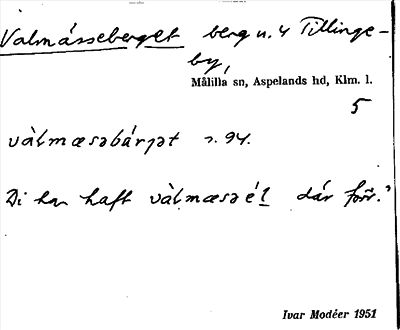 Valmässeberget berg n. 4 Tillinge-
by,
Målilla sn, Aspelands hd, Klm. l.
5
vàlmæsəbárjət 2. 94.
Di ha haft vàlmæsəél dár förr."
Ivar Modéer 1951